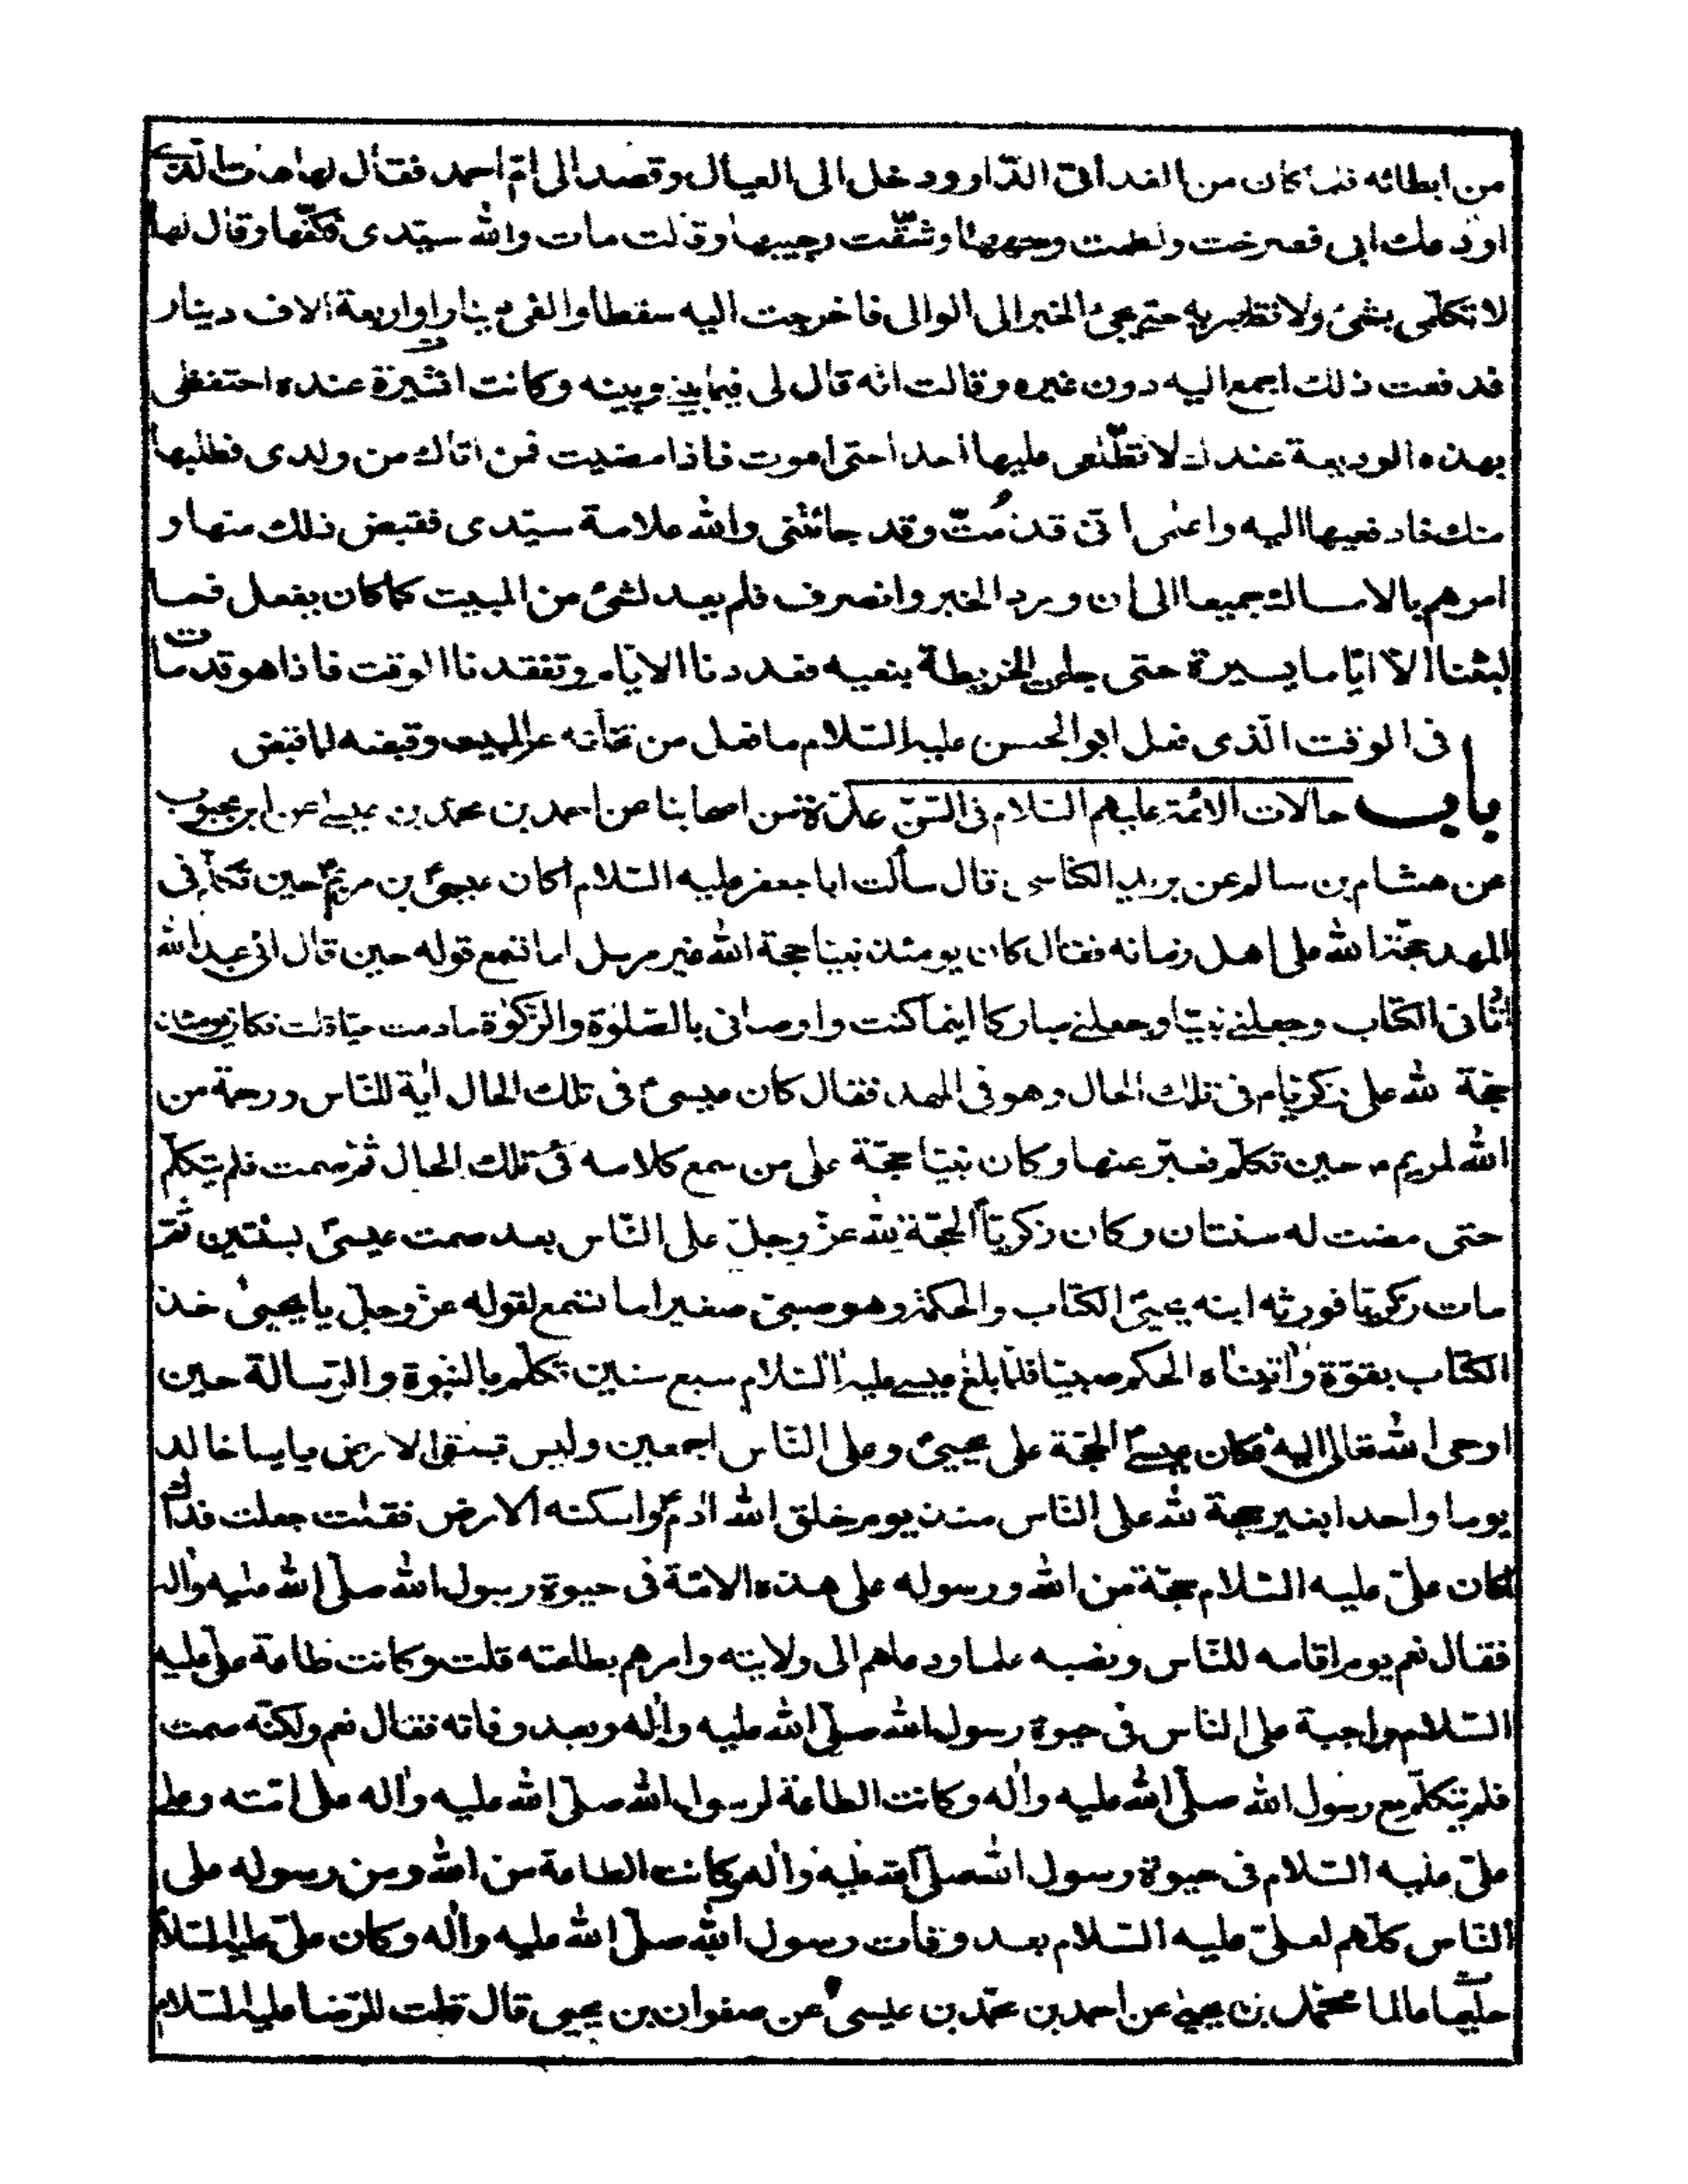 من ابطائه فلما كان من الغد اتى الدّار ودخل الى العيال وقصد الى امّ احمد فقال لها هات الّذى
اودعك ابى فصرخت ولطمت وجهها وشقّت جيبها وقالت مات والله سيّدى فكفّها وقال لها
لا تكلّمى بشئ ولا تظهريه حتى يجئ الخبر الى الوالى فاخرجت اليه سفطا والفى دينار او اربعة الاف دينار
فدفعت ذلك اجمع اليه دون غيره وقالت انه قال لى فيما بينى وبينه وكانت اثيرة عنده احتفظى
بهذه الوديعة عندك لا تطّلعى عليها احدا حتى اموت فاذا مضيت فمن اتاك من ولدى فطلبها
منك فادفعيها اليه واعلمى انّى قد متّ وقد جائتنى والله علامة سيّدى فقبض ذلك منها و
امرهم بالامساك جميعا الى ان ورد الخبر وانصرف فلم يعد لشئ من المبيت كما كان يفعل فما
لبثنا الّا ايّاما يسيرة حتى جاءت الخريطة بنعيه فعددنا الايّام وتفقدنا الوقت فاذا هو قد مات
فى الوقت الّذى فعل ابو الحسن عليه السّلام ما فعل من تخلّفه عن المبيت وقبضه لما قبض
باب حالات الائمّة عليهم السّلام فى السّنّ عدّة من اصحابنا عن احمد بن محمّد بن عيسى عن ابن محبوب
عن هشام بن سالم عن بريد الكناسى قال سألت ابا جعفر عليه السّلام اكان عيسى بن مريم حين تكلّم فى
المهد حجّة الله على اهل زمانه فقال كان يومئذ نبيّا حجة الله غير مرسل اما تسمع قوله حين قال انّى عبد الله
اتانى الكتاب وجعلنى نبيّا وجعلنى مباركا اينما كنت واوصانى بالصّلوة والزّكوة ما دمت حيّا قلت فكان يومئذ
حجّة لله على زكريّا فى تلك الحال وهو فى المهد فقال كان عيسى فى تلك الحال اية للنّاس ورحمة من
الله لمريم حين تكلّم فعبّر عنها وكان نبيّا حجّة على من سمع كلامه فى تلك الحال ثمّ صمت فلم يتكلّم
حتى مضت له سنتان وكان زكريّا الحجّة لله عزّ وجلّ على النّاس بعد صمت عيسى بسنتين ثمّ
مات زكريّا فورثه ابنه يحيى الكتاب والحكمة وهو صبىّ صغير اما تسمع لقوله عزّ وجلّ يا يحيى خذ
الكتاب بقوّة واتيناه الحكم صبيّا فلمّا بلغ عيسى عليه السّلام سبع سنين تكلّم بالنبوة والرّسالة حين
اوحى الله تعالى اليه فكان عيسى الحجّة على يحيى وعلى النّاس اجمعين وليس تبقى الارض يا با خالد
يوما واحدا بغير حجة لله على النّاس منذ يوم خلق الله ادم واسكنه الارض فقلت جعلت فداك
اكان علىّ عليه السّلام حجّة من الله ورسوله على هذه الامّة فى حيوة رسول الله صلّى الله عليه واله
فقال نعم يوم اقامه للنّاس ونصبه علما ودعاهم الى ولايته وامرهم بطاعته قلت وكانت طاعة علىّ عليه
السّلام واجبة على النّاس فى حيوة رسول الله صلّى الله عليه واله وبعد وفاته فقال نعم ولكنّه صمت
فلم يتكلّم مع رسول الله صلّى الله عليه واله وكانت الطاعة لرسول الله صلّى الله عليه واله على امّته وعلى
علىّ عليه السّلام فى حيوة رسول الله صلّى الله عليه واله وكانت الطاعة من الله ومن رسوله على
النّاس كلّهم لعلىّ عليه السّلام بعد وفات رسول الله صلّى الله عليه واله وكان علىّ عليه السّلام
حكيما عالما محمّد بن يحيى عن احمد بن محمّد بن عيسى عن صفوان بن يحيى قال قلت للرّضا عليه السّلام